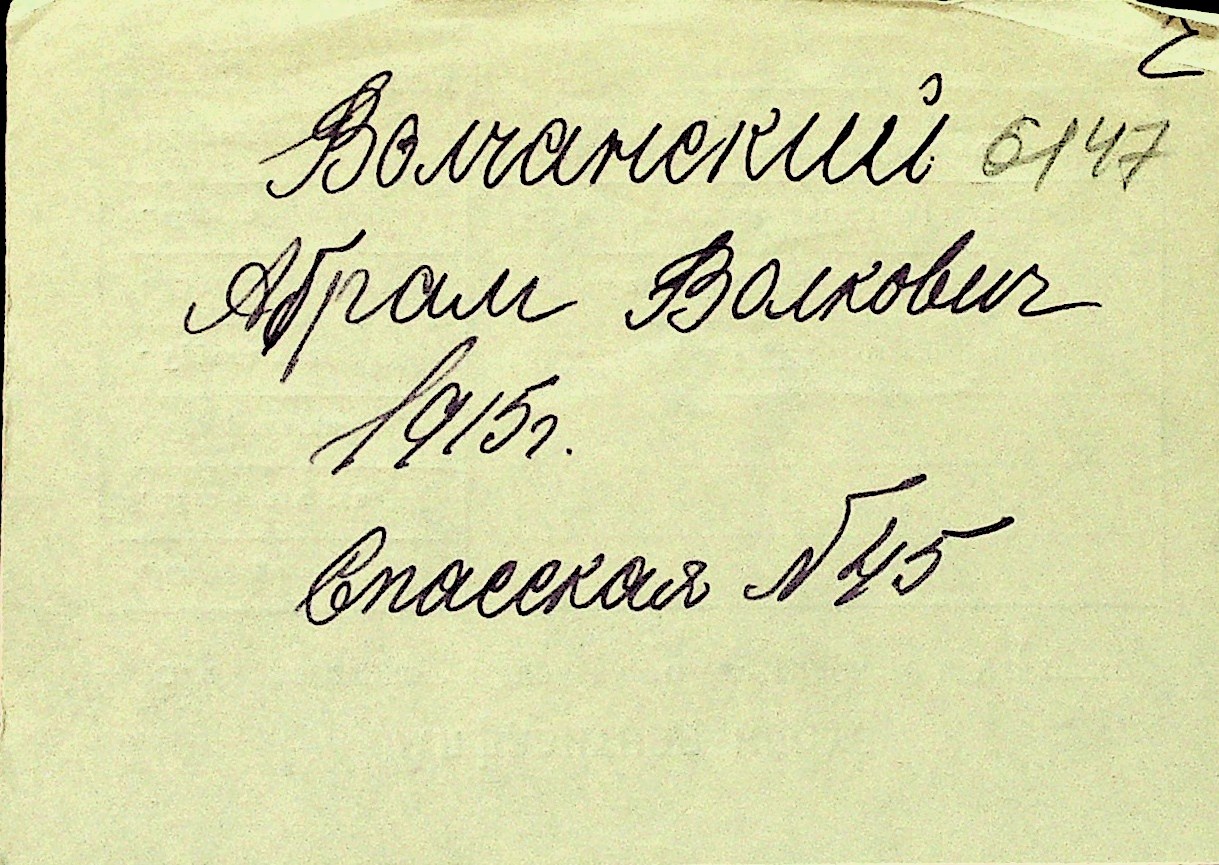 Волчанский 6147
Абрам Волкович
1915г.
Спасская №45